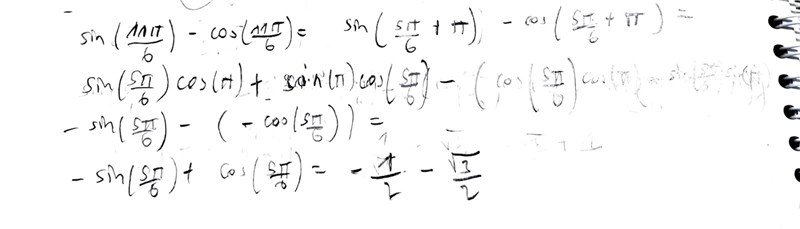 sin(11π/6) - cos(11π/6) = sin(5π/6 + π) - cos(5π/6 + π) =
sin(5π/6) cos(π) + sin(π) cos(5π/6) - (cos(5π/6) cos(π) - sin(5π/6) sin(π)
- sin(5π/6) - (- cos(5π/6)) =
- sin(5π/6) + cos(5π/6) = - 1/2 - √3/2